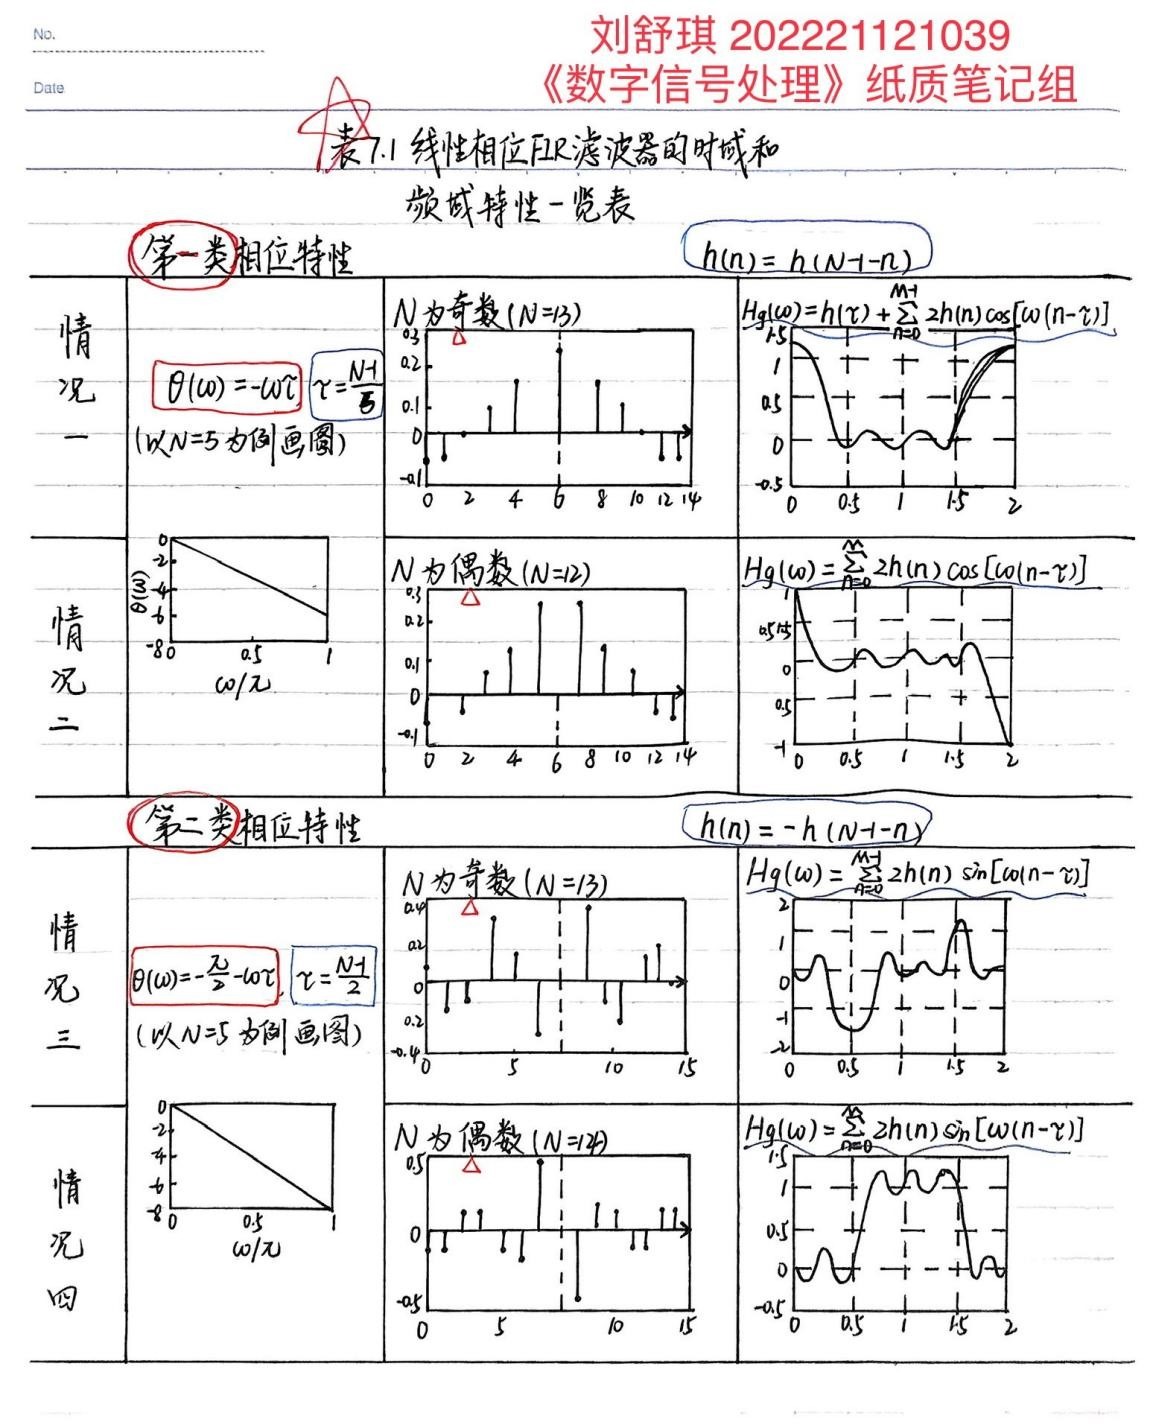 No.
Date
刘舒琪 202221121039
《数字信号处理》纸质笔记组
表7.1 线性相位FIR滤波器的时域和
频域特性一览表
第一类相位特性
h(n) = h(N-1-n)
情况一
θ(ω) = -ωτ
(以N=5为例画图)
N为奇数(N=13)
0.3
0.2
0.1
0
-0.1
0 2 4 6 8 10 12 14
Hg(ω) = h(τ) + Σ_{n=0}^{M-1} 2h(n) cos[ω(n-τ)]
1.5
1
0.5
0
-0.5
0 0.5 1 1.5 2
情况二
θ(ω)
0
-2
-4
-6
-8
0 0.5 1
ω/π
N为偶数(N=12)
0.3
0.2
0.1
0
-0.1
0 2 4 6 8 10 12 14
Hg(ω) = Σ_{n=0}^{M} 2h(n) cos[ω(n-τ)]
1
0
0.5
-1
0 0.5 1 1.5 2
第二类相位特性
h(n) = -h(N-1-n)
情况三
θ(ω) = -π/2 - ωτ, τ = (N-1)/2
(以N=5为例画图)
N为奇数(N=13)
0.4
0.2
0
0.2
-0.4
0 5 10 15
Hg(ω) = Σ_{n=0}^{M-1} 2h(n) sin[ω(n-τ)]
2
1
0
-1
-2
0 0.5 1 1.5 2
情况四
0
-2
-4
-6
-8
0 0.5 1
ω/π
N为偶数
0.5
0
-0.5
0 5 10 15
Hg(ω) = Σ_{n=0}^{M} 2h(n) sin[ω(n-τ)]
1.5
1
0.5
0
-0.5
0 0.5 1 1.5 2